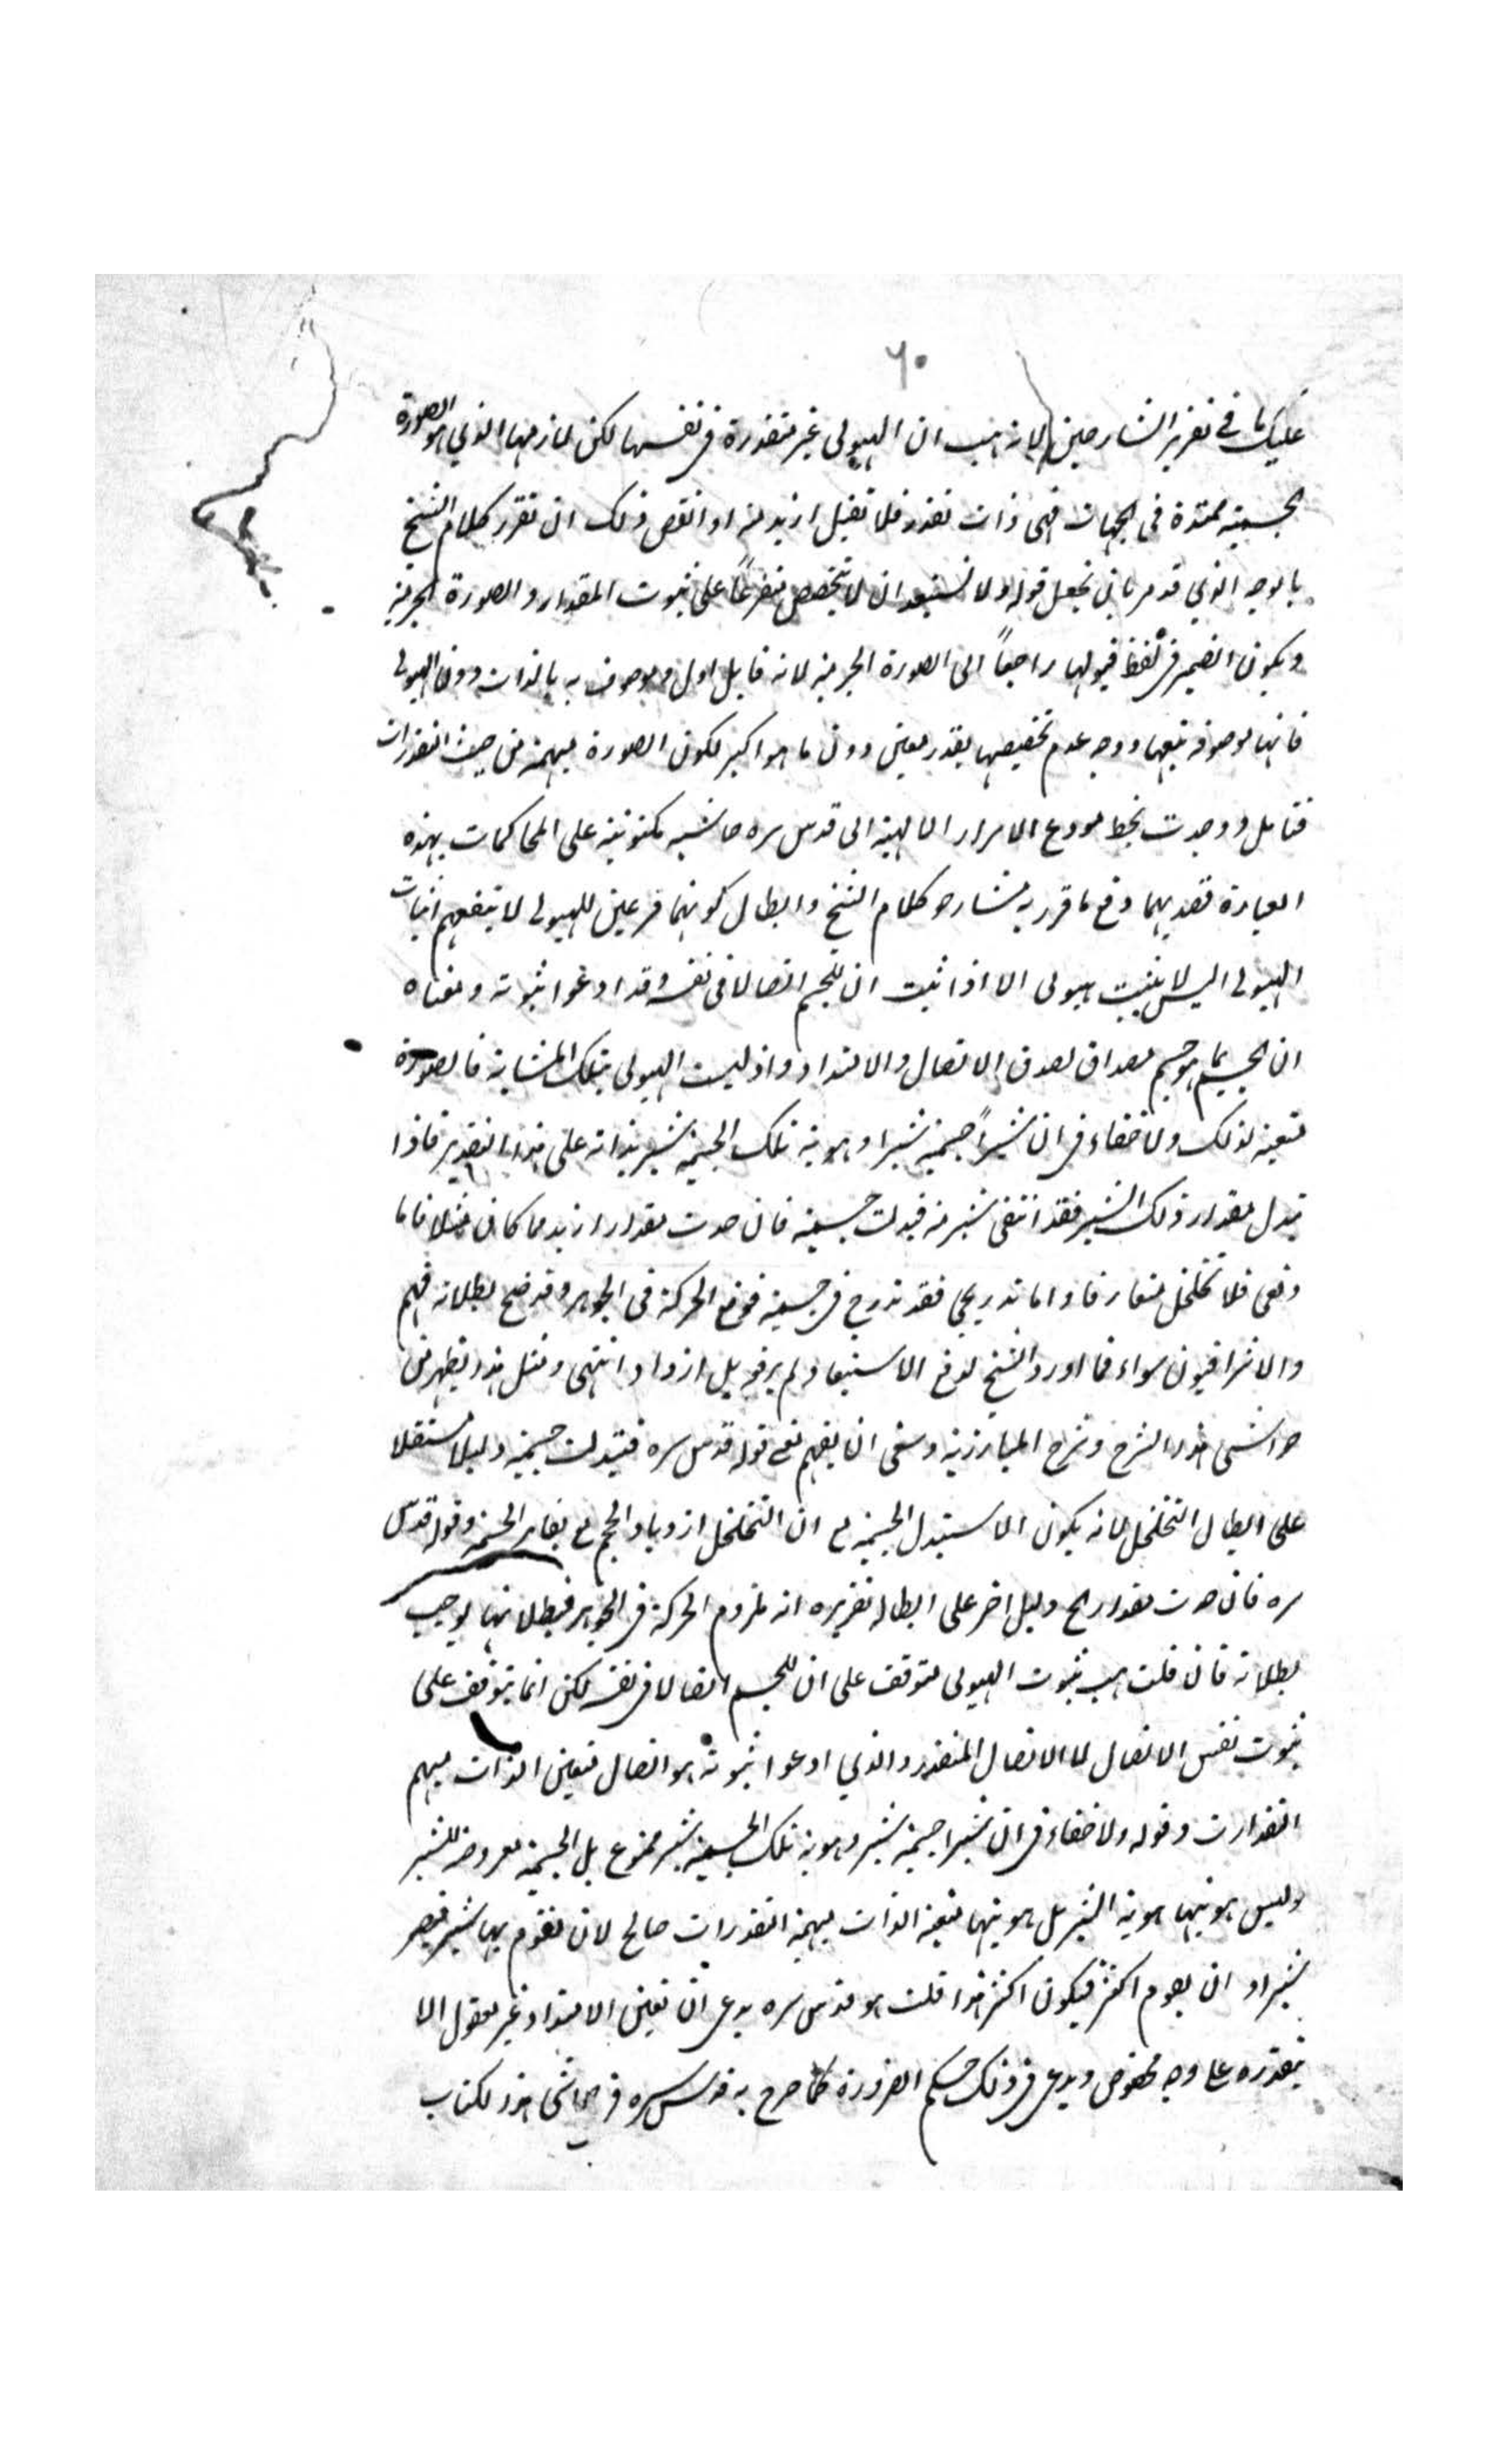 ٦٠
عليك ما في تقرير الشارحين لانه هب ان الهيولى غير متقدرة في نفسها لكن لازمها الذي هو الصورة
الجسمية ممتدة في الجهات فهي ذات تقدر فلا تقبل ازيد منه او انقص ذلك ان تقرر كلام الشيخ
بالوجه الذي قد مر بان تجعل قوله ولا تستبعد ان لا تتخصص متفرعاً على ثبوت المقدار والصورة الجرمية
ويكون الضمير في لفظ قبولها راجعاً الى الصورة الجرمية لانه قابل اول وموصوف به بالذات دون الهيولى
فانها موصوفة بتبعها ووجه عدم تخصيصها بقدر معين دون ما هو اكبر لكون الصورة مبهمة من حيث التقدرات
فتامل ووجدت بخط مودع الاسرار الالهية الى قدس سره حاشية مكتوبة على المحاكمات بهذه
العبارة قصد بهما دفع ما قرر به شارحو كلام الشيخ وابطال كونهما فرعين للهيولى لا ينفعهم اثبات
الهيولى اليس لا يثبت هيولى الا اذا ثبت ان للجسم اتصالا في نفسه وقد ادعوا ثبوته ومعناه
ان الجسم بما هو جسم مصداق لصدق الاتصال والامتداد واذ ليست الهيولى بتلك المثابة فالصورة
متعينة لذلك ولا خفاء في ان شبراً جسمية شبر او هوية تلك الجسمية شبر بذاته على هذا التقدير فاذا
تبدل مقدار ذلك الشبر فقد انتفى شبر منه فتبدلت جسمية فان حدث مقدار ازيد مما كان مثلا فاما
دفعى فلا تخلخل متعارفا واما تدريجي فقد تدرج في جسمية فوقع الحركة في الجوهر وقد وضح بطلانه فهم
والاشراقيون سواء فما اورد الشيخ لدفع الاستبعاد لم يرفعه بل ازداد انتهى ومثل هذا يظهر من
حواشى هذا الشرح وشرح المبارزية وينبغى ان يفهم قوله قدس سره فتبدلت جسمية دليلا مستقلا
على ابطال التخلخل لانه يكون الا ستبدل الجسمية مع ان التخلخل ازدياد الحجم مع بقاء الجسمية وقوله قدس
سره فان حدث مقدار الخ دليل اخر على ابطاله تقريره انه ملزوم الحركة في الجوهر فبطلانها يوجب
بطلانه فان قلت هب ثبوت الهيولى متوقف على ان للجسم اتصالا في نفسه لكن انما يتوقف على
ثبوت نفس الاتصال لا الاتصال المتقدر والذي ادعوا ثبوته هو اتصال متعين الذات مبهم
التقدارت وقوله ولا خفاء في ان شبرا جسمية شبر وهوية تلك الجسمية شبر ممنوع بل الجسمية معروضة للشبر
وليس هويتها هوية الشبر بل هويتها متعينة الذات مبهمة التقدرات صالح لان تقوم بها شبر فتصير
شبرا او ان يقوم اكثر فيكون اكثر هذا قلت هو قدس سره يدعي ان تعين الامتداد غير معقول الا
بتقدره على وجه مخصوص ويدعي في ذلك حكم الضرورة كما صرح به قدس سره في حواشي هذا الكتاب